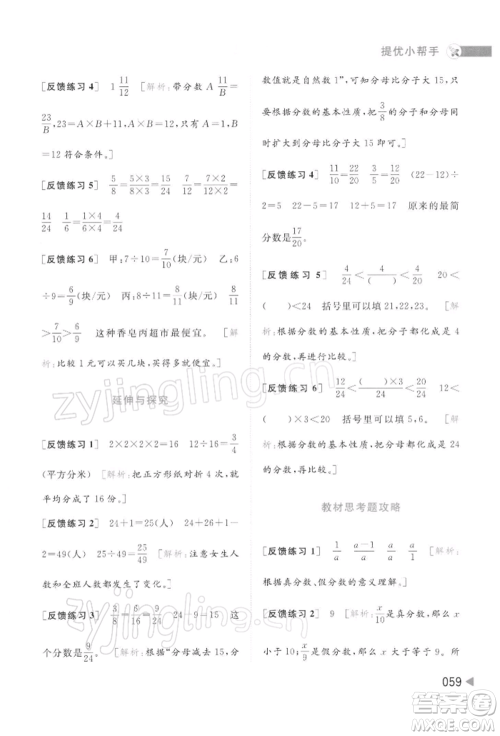 提优小帮手
[反馈练习 4] 1 11/12 [解析:带分数 A 11/B =
23/B,23=A×B+11,A×B=12,A=1,B
=12 符合条件。]
[反馈练习 5] 5/8=(5×3)/(8×3)=15/24 7/12=(7×2)/(12×2)=
14/24 1/6=(1×4)/(6×4)=4/24
[反馈练习 6] 甲:7÷10=7/10(块/元) 乙:
6÷9=6/9(块/元) 丙:8÷10=8/10(块/元) 8/10
>7/10>6/9 这种香皂丙超市最便宜。[解
析:比较 1 元可以买几块,根据分母和分子
的特点灵活比较分数的大小。]
延伸与探究
[反馈练习 1] 2×2×2×2=16 12÷16=3/4
(平方分米) [解析:把正方形纸对折 4 次,
平均分成了 16 份。]
[反馈练习 2] 24+1=25(人) 25+24=
2=49(人) 25÷49=25/49 [解析:注意女生人
数和全班人数都发生了变化。]
[反馈练习 3] 3/8=9/24 24-9-15=
9/24。[解析:根据“分母与分子的差是 15,这
数值是自然数 1”,可知分母比分子大 15,
只要根据分数的基本性质,把分子和分母同
时扩大到分母比分子大 15 即可。]
[反馈练习 4] 11/10=22/20 3/5=12/20 (22-12)÷
2=5 22-5=17 12+5=17 原来的最简
分数是17/20。
[反馈练习 5] 4/24<4/( )<4/20 20<
( )<24 括号里可以填 21,22,23。[解
析:根据分数的基本性质,把分子都化成是
4 的分数,再比较。]
[反馈练习 6] 12/24<( )×3/24<20/24 12<
( )×3<20 括号里可以填 5,6。[解
析:根据分数的基本性质,把分母都化成是
24 的分数,再比较。]
教材思考题攻略
[反馈练习 1] 1/a a-1/a a/a-1 [解析:
根据真分数、假分数的意义理解。]
[反馈练习 2] 9 [解析:x/10是真分数,那么 x
小于 10;9/x是假分数,那么 x 小于或等于 9。
所以 x 最大是 9。]
059
zyjingling.com
zyjingling.cn
答案圈
MXQE.COM